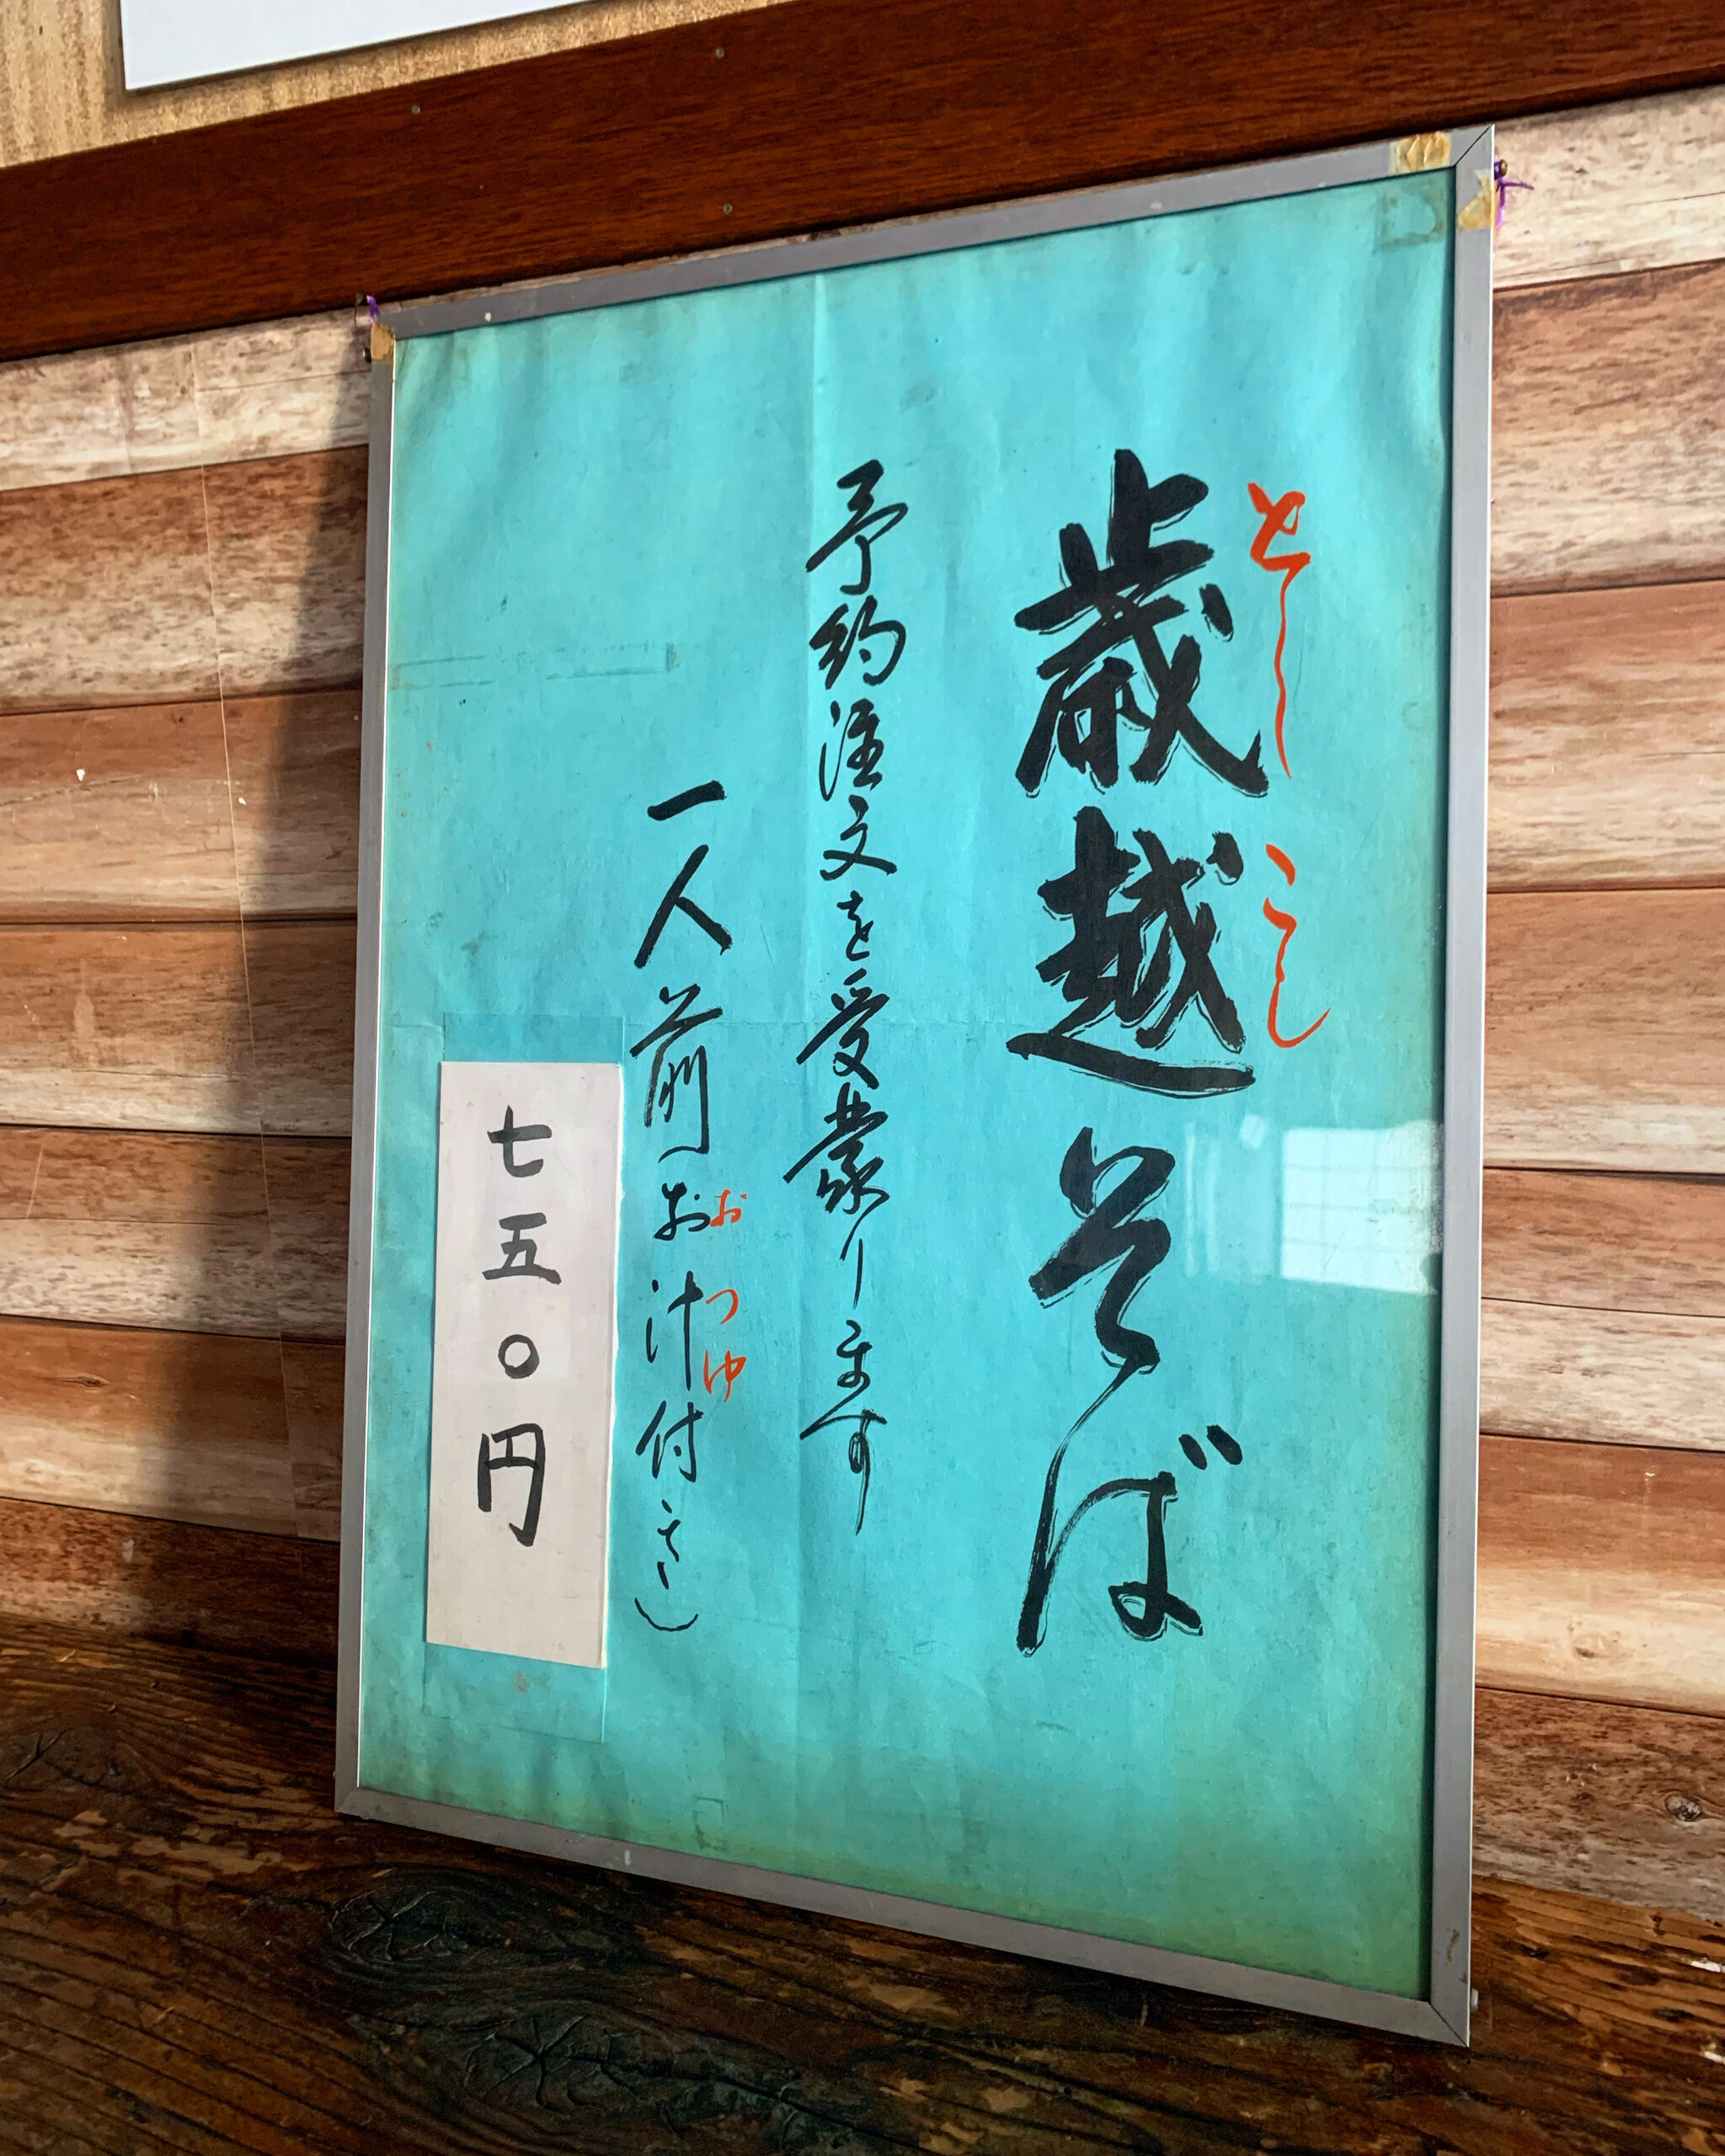 歳越そば
としこし
予約注文を受豪ります
一人前お汁付き)
おつゆ
七五〇円